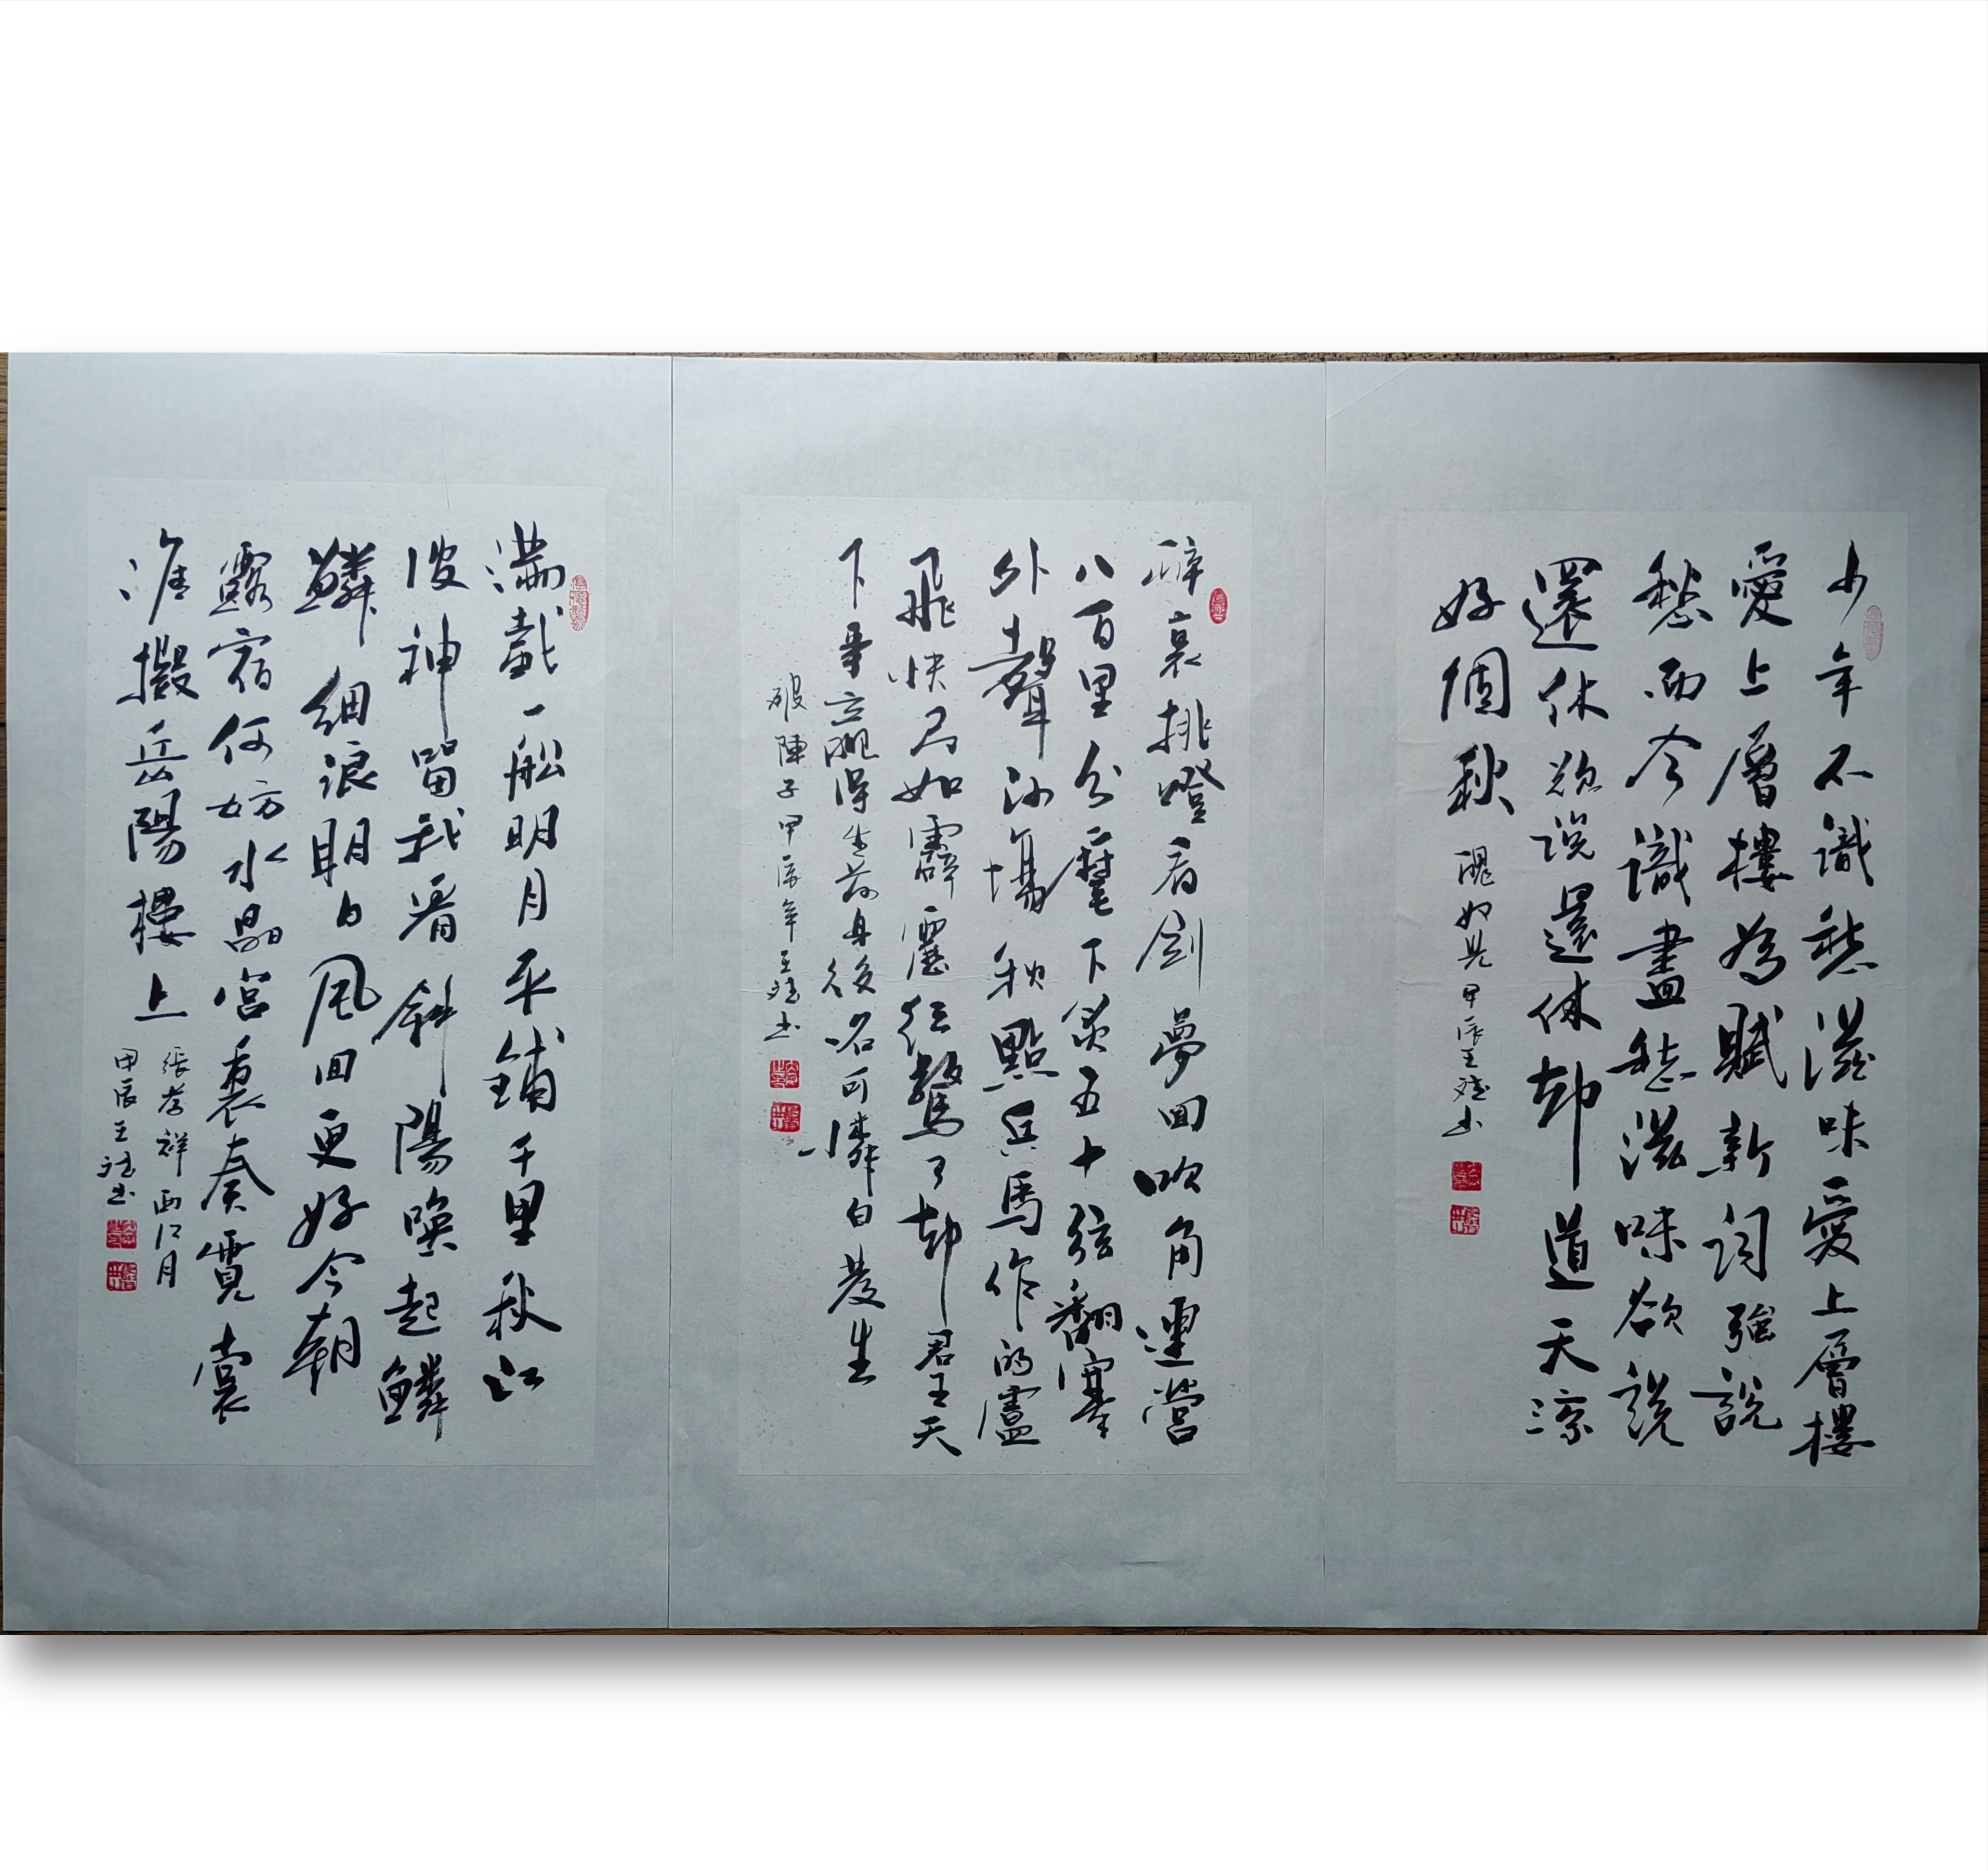 少年不識愁滋味愛上層樓
愛上層樓為賦新詞強說
愁而今識盡愁滋味欲說
還休欲說還休却道天涼
好個秋
醜奴兒甲辰王斌書
醉裏挑燈看劍夢回吹角連營
八百里分麾下炙五十弦翻塞
外聲沙場秋點兵馬作的盧
飛快弓如霹靂弦驚了却君王天
下事贏得生前身後名可憐白發生
破陣子甲辰年王斌書
滿載一船明月平鋪千里秋江
波神留我看斜陽喚起鱗
鱗細浪明日風回更好今朝
露宿何妨水晶宮裏奏霓裳
准擬岳陽樓上
張孝祥西江月
甲辰王斌書